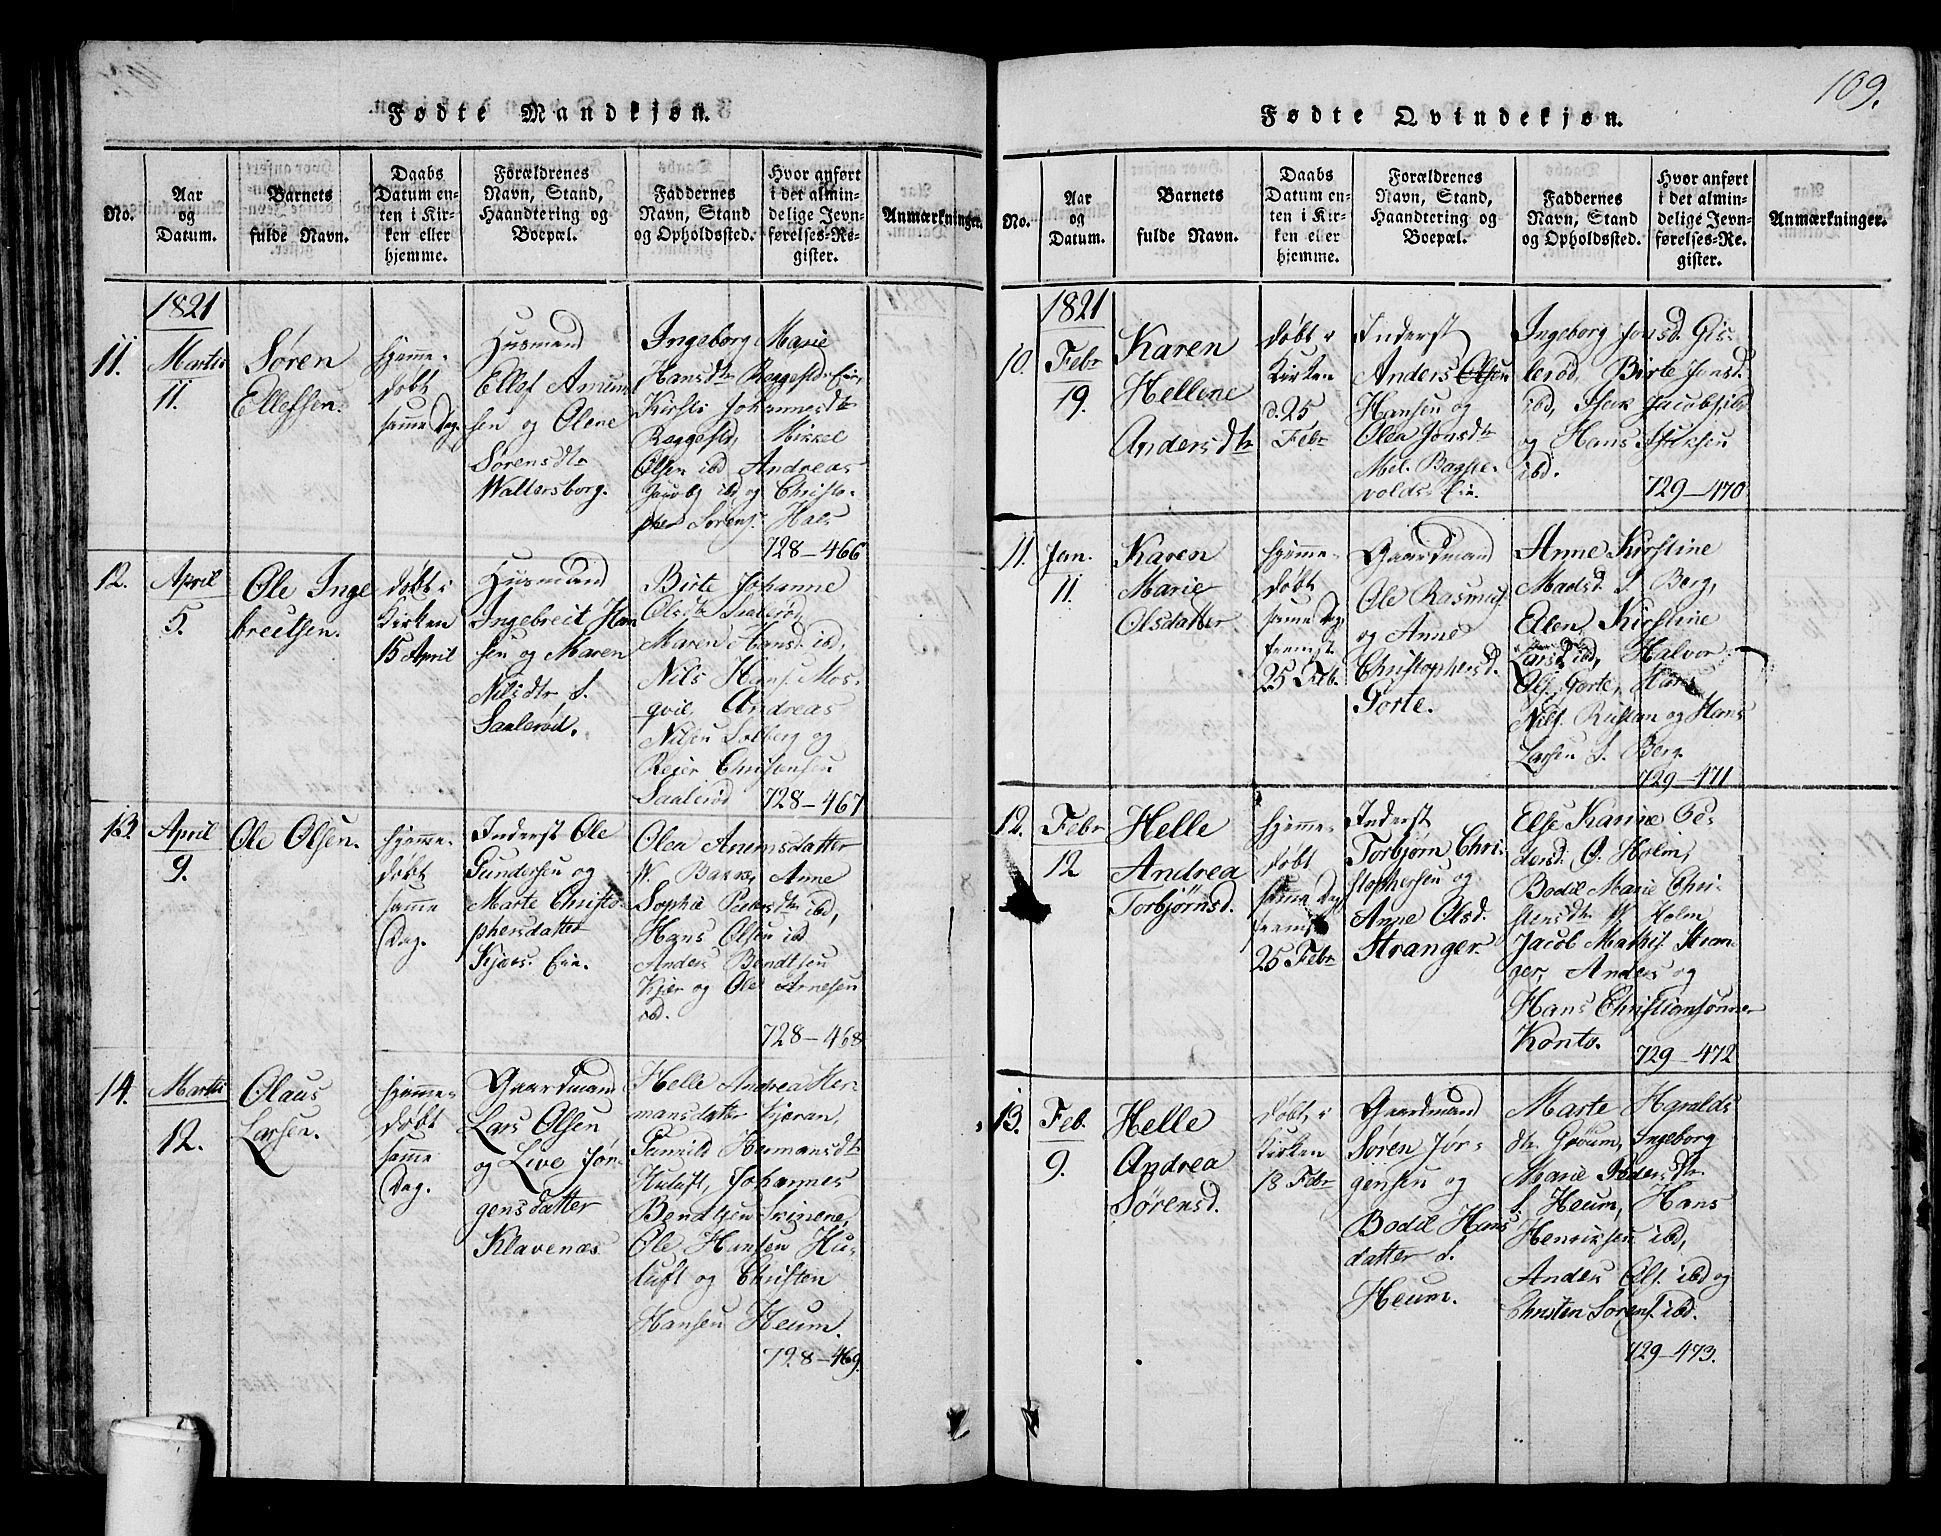 109.
Fødte Mandkjøn.
No.
Aar
og
Datum.
Barnets
fulde Navn.
Daabs
Datum en-
ten i Kir-
ken eller
hjemme.
Forældrenes
Navn, Stand,
Haandtering og
Boepæl.
Faddernes
Navn, Stand
og Opholdssted.
Hvor anført
i det almin-
delige Jevn-
førelses-Re-
gister.
Anmærkninger.
1821
11.
Martii
11.
Søren
Ellefsen.
hjemme-
døbt
samme Dag.
Husmand
Ellef Amun
sen og Olene
Sørensdtr
Waltersborg.
Ingeborg Marie
Hansdtr Roggestd Eie,
Kirsti Johannesdtr
Roggestd, Mikkel
Olsen ibd Andreas
Jacobs ibd, og Christo-
pher Sørens.
728-466
12.
April
5.
Ole Inge
breetsen.
døbt i
Kirken
15 April
Husmand
Ingebret Han
sen og Maren
Nilsdtr S.
Saalerød.
Birte Johanne
Olsdtr Saalerød,
Maren Hansd. ibd,
Nils Hans. Mos-
qvil Andreas
Nilsen Solberg og
Reier Christensen
Saalerød
728-467
13.
April
9.
Ole Olsen.
hjemme-
døbt
samme
Dag.
Inderst Ole
Gundersen og
Marte Christo
phersdatter
Kjærs Eie.
Olea Anemsdatter
W. Anne
Sophie Pedersdtr ibd,
Hans Olsen ibd
Anders Bendtsen
Kjær og Ole Arnesen
ibd.
728-468
14.
Martii
12.
Olaus
Larsen.
hjemme-
døbt
samme
Dag.
Gaardmand
Lars Olsen
og Live Jør-
gensdatter
Klavenæs
Helle Andrea Her-
mansdatter Kjæran,
Gunnild Hermansdtr
Huluft, Johannes
Bendtsen
Ole Hansen Hu-
luft og Christen
Hansen Heum.
728-469.
Fødte Qvindekjøn.
No.
Aar
og
Datum.
Barnets
fulde Navn.
Daabs
Datum en-
ten i Kir-
ken eller
hjemme.
Forældrenes
Navn, Stand,
Haandtering og
Boepæl.
Faddernes
Navn, Stand
og Opholdssted.
Hvor anført
i det almin-
delige Jevn-
førelses-Re-
gister.
Anmærkninger.
1821
10.
Febr
19.
Karen
Hellene
Andersdtr
døbt i
Kirken
d. 25
Febr
Inderst
Anders Olsen
Hansen og
Olea Jonsdtr
Mel. Bagste-
volds Eie.
Ingeborg Jonsd. Gis-
lerød, Birte Jonsd.
ibd, Isak Jacobs. ibd
og Hans Isaksen
ibd.
729-470
11.
Jan.
11.
Karen
Marie
Olsdatter
hjemme-
døbt
samme Dag
fremst.
25 Feb.
Gaardmand
Ole Rasmus.
og Anne
Christophersd.
Gorte.
Anne Kirstine
Madsd. S. Berg,
Ellen Kirstine
Larsd. ibd, Halvor
Ols. Gorte, Hans
Nils. og Hans
Larsen S. Berg.
729-471
12.
Febr
12
Helle
Andrea
Torbjørnsd.
hjemme-
døbt
samme Dag
fremst
25 Febr
Inderst
Torbjørn Chri-
stophersen og
Anne Olsd.
Stranger.
Else Karine Pe-
dersd. Ø. Holm,
Bodil Marie Chri-
stensdtr W. Holm
Jacob Mathis. Stran-
ger, Anders og
Hans Christiansønner
Konto.
729-472
13.
Feb.
9.
Helle
Andrea
Sørensd.
døbt i
Kirken
18 Febr
Gaardmand
Søren Jør-
gensen og
Bodil Hans
datter S.
Heum.
Marte Haralds
dtr Grøum, Ingeborg
Marie Pedersdtr
S. Heum, Hans
Henriksen ibd,
Anders Ols. ibd og
Christen Sørens. ibd.
729-473.